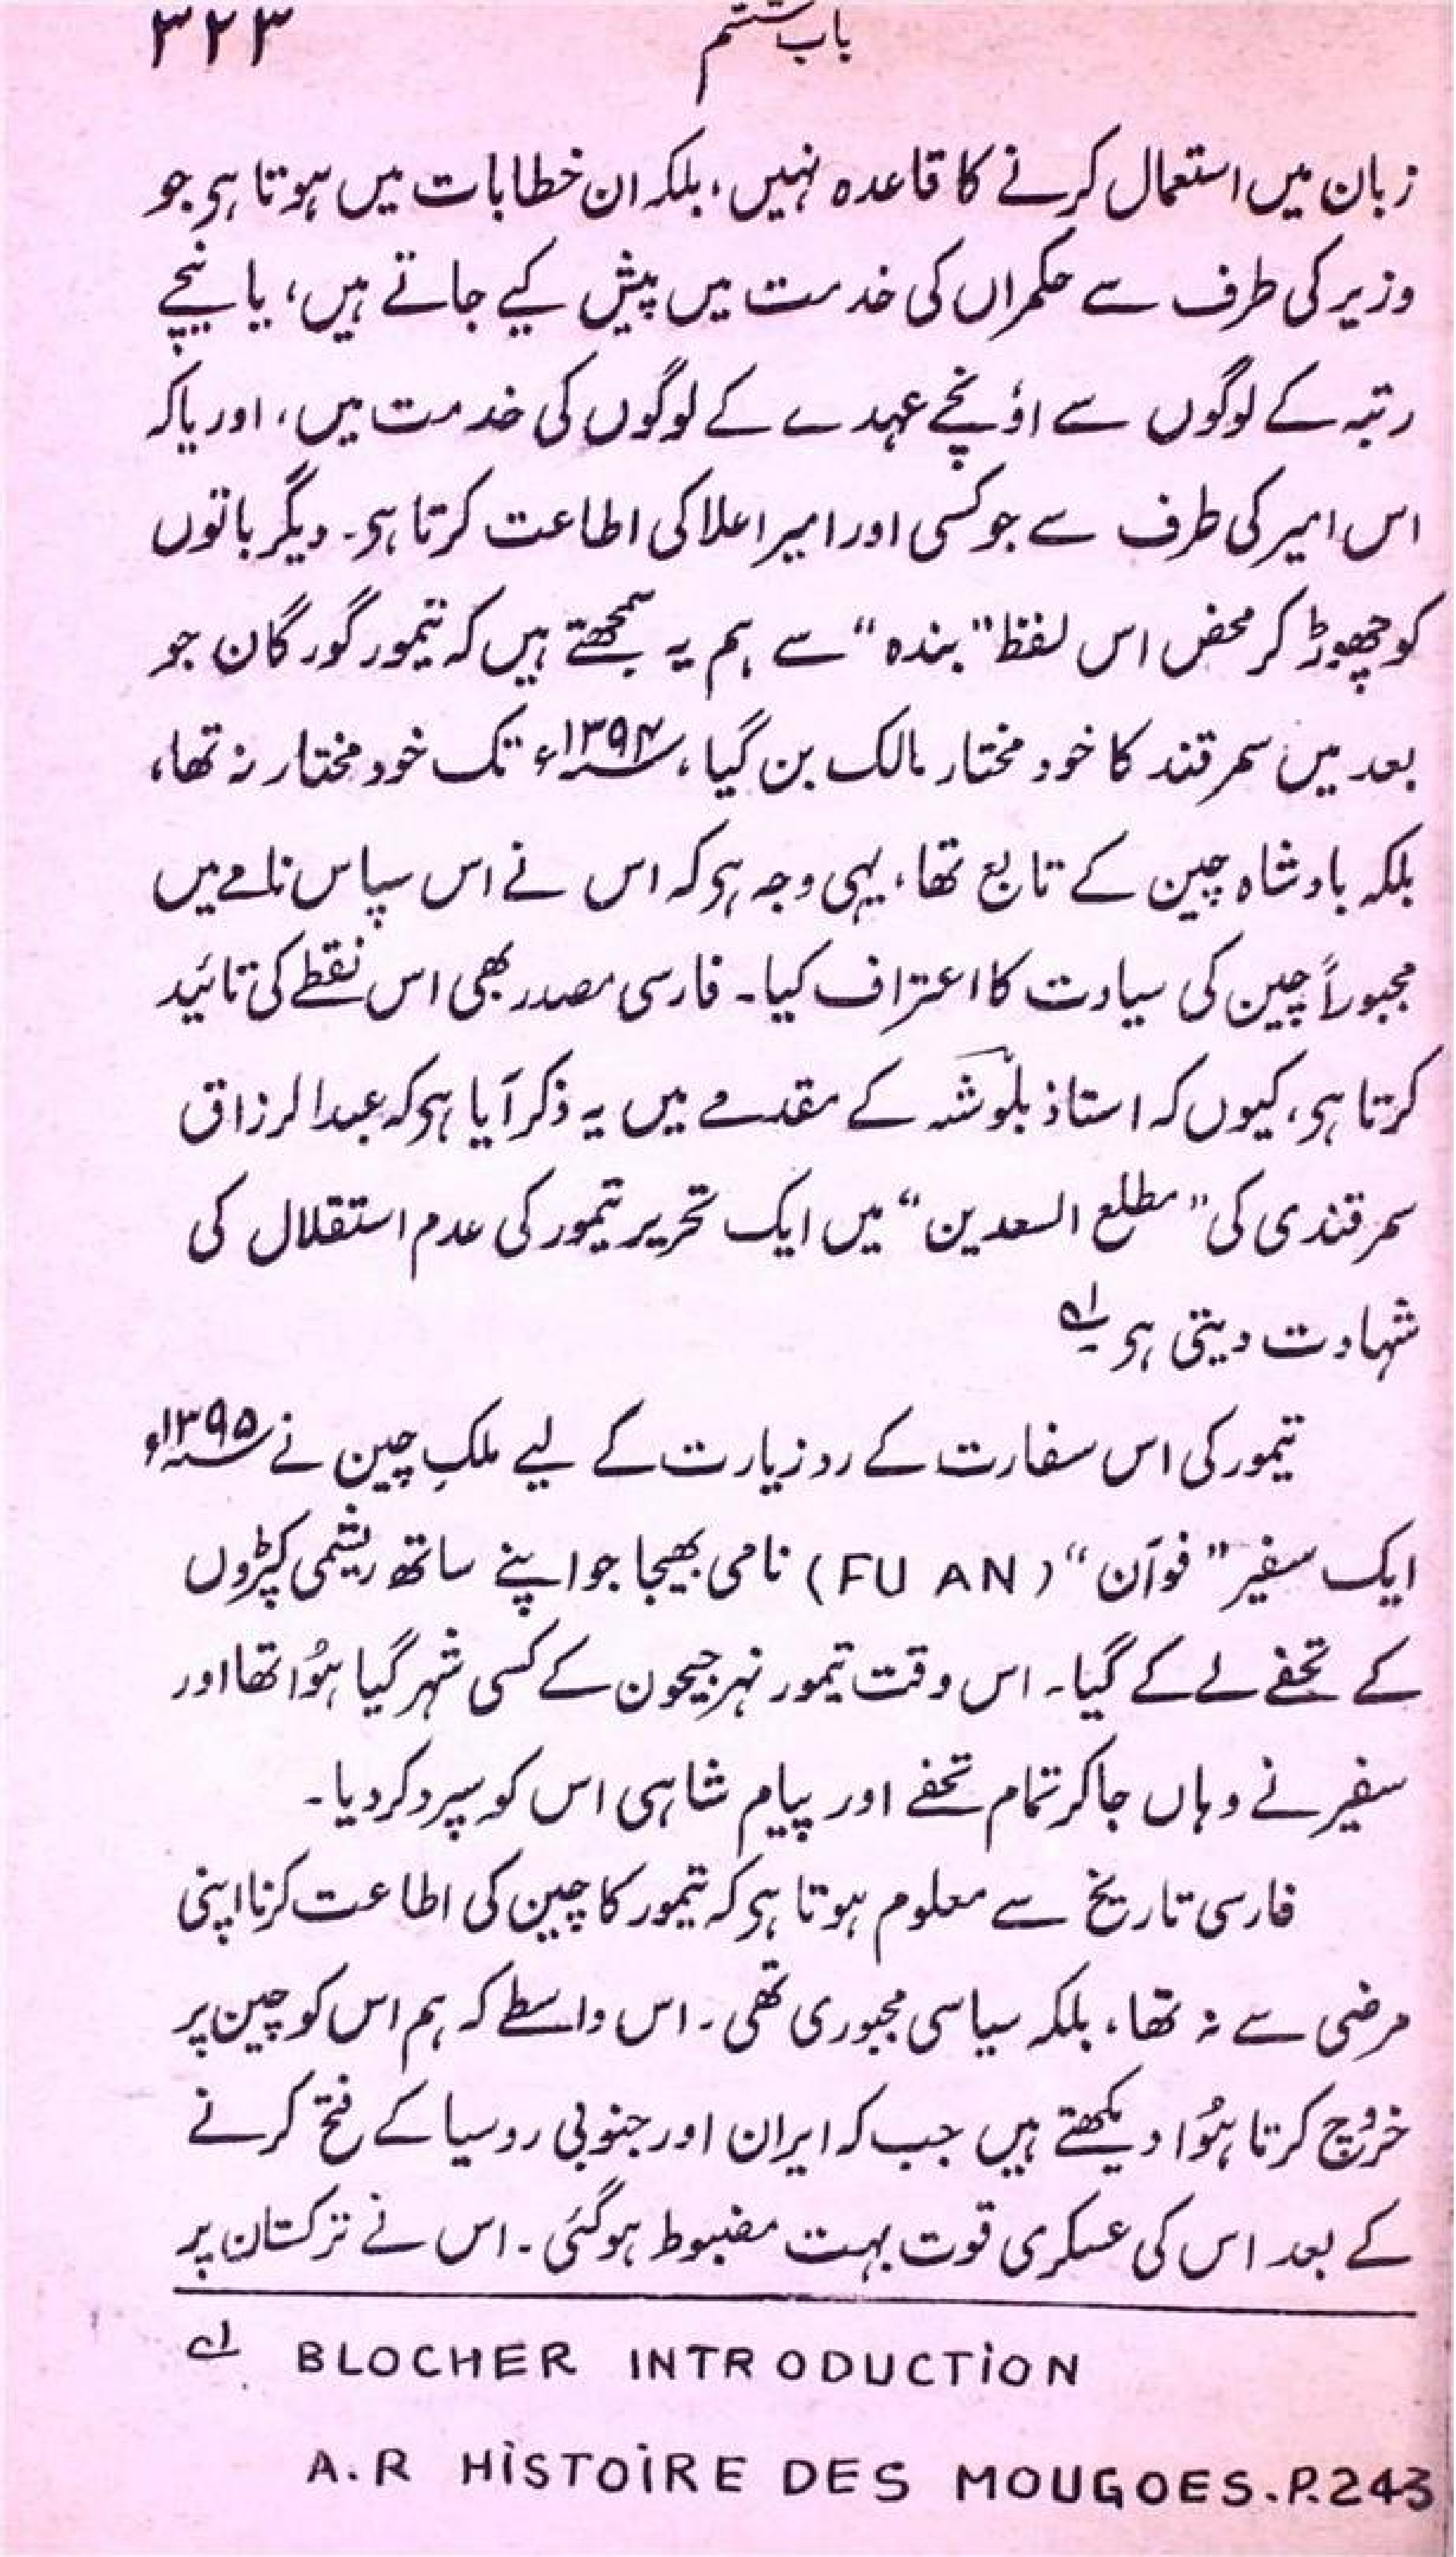 باب ششم ۳۲۳
زبان میں استعمال کرنے کا قاعدہ نہیں، بلکہ ان خطابات میں ہوتا ہی جو
وزیر کی طرف سے حکمراں کی خدمت میں پیش کیے جاتے ہیں، یا نیچے
رتبہ کے لوگوں سے اؤنچے عہدے کے لوگوں کی خدمت میں، اور یا کہ
اس امیر کی طرف سے جو کسی اور امیر اعلا کی اطاعت کرتا ہی۔ دیگر باتوں
کو چھوڑ کر محض اس لفظ "بندہ" سے ہم یہ سمجھتے ہیں کہ تیمور گورگان جو
بعد میں سمرقند کا خود مختار مالک بن گیا، ۱۳۹۴ء تک خود مختار نہ تھا،
بلکہ بادشاہ چین کے تابع تھا، یہی وجہ ہی کہ اس نے اس سپاس نامے میں
مجبوراً چین کی سیادت کا اعتراف کیا۔ فارسی مصدر بھی اس نقطے کی تائید
کرتا ہی، کیوں کہ استاذ بلوشہ کے مقدمے میں یہ ذکر آیا ہی کہ عبدالرزاق
سمرقندی کی "مطلع السعدین" میں ایک تحریر تیمور کی عدم استقلال کی
شہادت دیتی ہی۔ لہ
تیمور کی اس سفارت کے رد زیارت کے لیے ملکِ چین نے ۱۳۹۵ء
ایک سفیر "فوآن" (FU AN) نامی بھیجا جو اپنے ساتھ ریشمی کپڑوں
کے تحفے لے کے گیا۔ اس وقت تیمور نہر جیحون کے کسی شہر گیا ہؤا تھا اور
سفیر نے وہاں جا کر تمام تحفے اور پیام شاہی اس کو سپرد کر دیا۔
فارسی تاریخ سے معلوم ہوتا ہی کہ تیمور کا چین کی اطاعت کرنا اپنی
مرضی سے نہ تھا، بلکہ سیاسی مجبوری تھی۔ اس واسطے کہ ہم اس کو چین پر
خروج کرتا ہؤا دیکھتے ہیں جب کہ ایران اور جنوبی روسیا کے فتح کرنے
کے بعد اس کی عسکری قوت بہت مضبوط ہوگئی۔ اس نے ترکستان پر
لہ BLOCHER INTRODUCTION
A.R HISTOIRE DES MOUGOES. P. 243